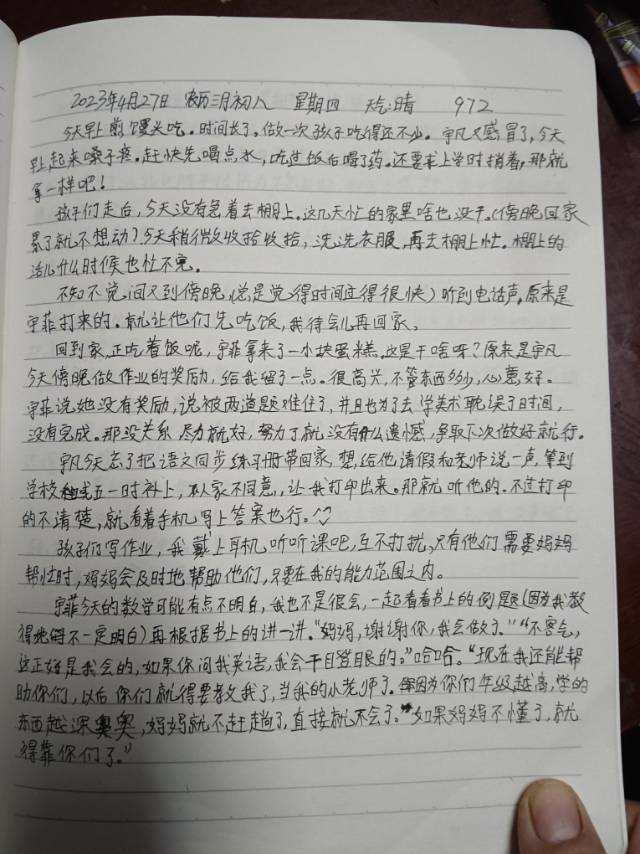 2023年4月27日 农历三月初八 星期四 天气:晴 972
今天早上煎馒头吃。时间长了。做一次孩子吃得还不少。宇凡又感冒了,今天
早上起来嗓子疼。赶快先喝点水,吃过饭后喝了药。还要求上学时捎着,那就
拿一样吧!
孩子们走后,今天没有急着去棚上。这几天忙的家里啥也没干。(傍晚回家
累了就不想动)今天稍微收拾收拾,洗洗衣服,再去棚上忙。棚上的
活儿什么时候也忙不完。
不知不觉间又到傍晚,(总是觉得时间过得很快)听到电话声,原来是
宇菲打来的。就让他们先吃饭,我待会儿再回家。
回到家,正吃着饭呢,宇菲拿来了一小块蛋糕。这是干啥呀?原来是宇凡
今天傍晚做作业的奖励,给我留了一点。很高兴,不管东西多少,心意好。
宇菲说她没有奖励,说被两道题难住了,并且也为了去学美术耽误了时间,
没有完成。那没关系,尽力就好,努力了就没有什么遗憾,争取下次做好就行。
宇凡今天忘了把语文同步练习册带回家,想给他请假和老师说一声,等到
学校五一时补上,人家不同意,让我打印出来。那就听他的。不过打印
的不清楚,就看着手机写上答案也行。
孩子们写作业,我戴上耳机听听课吧,互不打扰。只有他们需要妈妈
帮忙时,妈妈会及时地帮助他们,只要在我的能力范围之内。
宇菲今天的数学可能有点不明白,我也不是很会,一起看看书上的例题(因为我教
得她不一定明白)再根据书上的讲一讲。“妈妈,谢谢你,我会做了。”“不客气,
这正好是我会的,如果你问我英语,我会干目登眼的。”哈哈。“现在我还能帮
助你们,以后你们就得要教我了,当我的小老师了。因为你们年级越高,学的
东西越深奥,妈妈就不赶趟了,直接就不会了。”“如果妈妈不懂了,就
得靠你们了。”